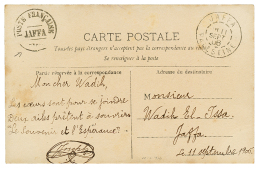 POSTE FRANÇAISE
JAFFA
JAFFA
CARTE POSTALE
Tous les pays étrangers n'acceptent pas la correspondance au recto
Se renseigner à la poste
Partie réservée à la correspondance
Adresse du destinataire
Mon cher Wadih,
Les cœurs sont pour se joindre
Deux ailes prêtent à souvenirs
"Le Souvenir et l'Espérance"
Monsieur
Wadih El-Issa
Jaffa
Le 11 septembre